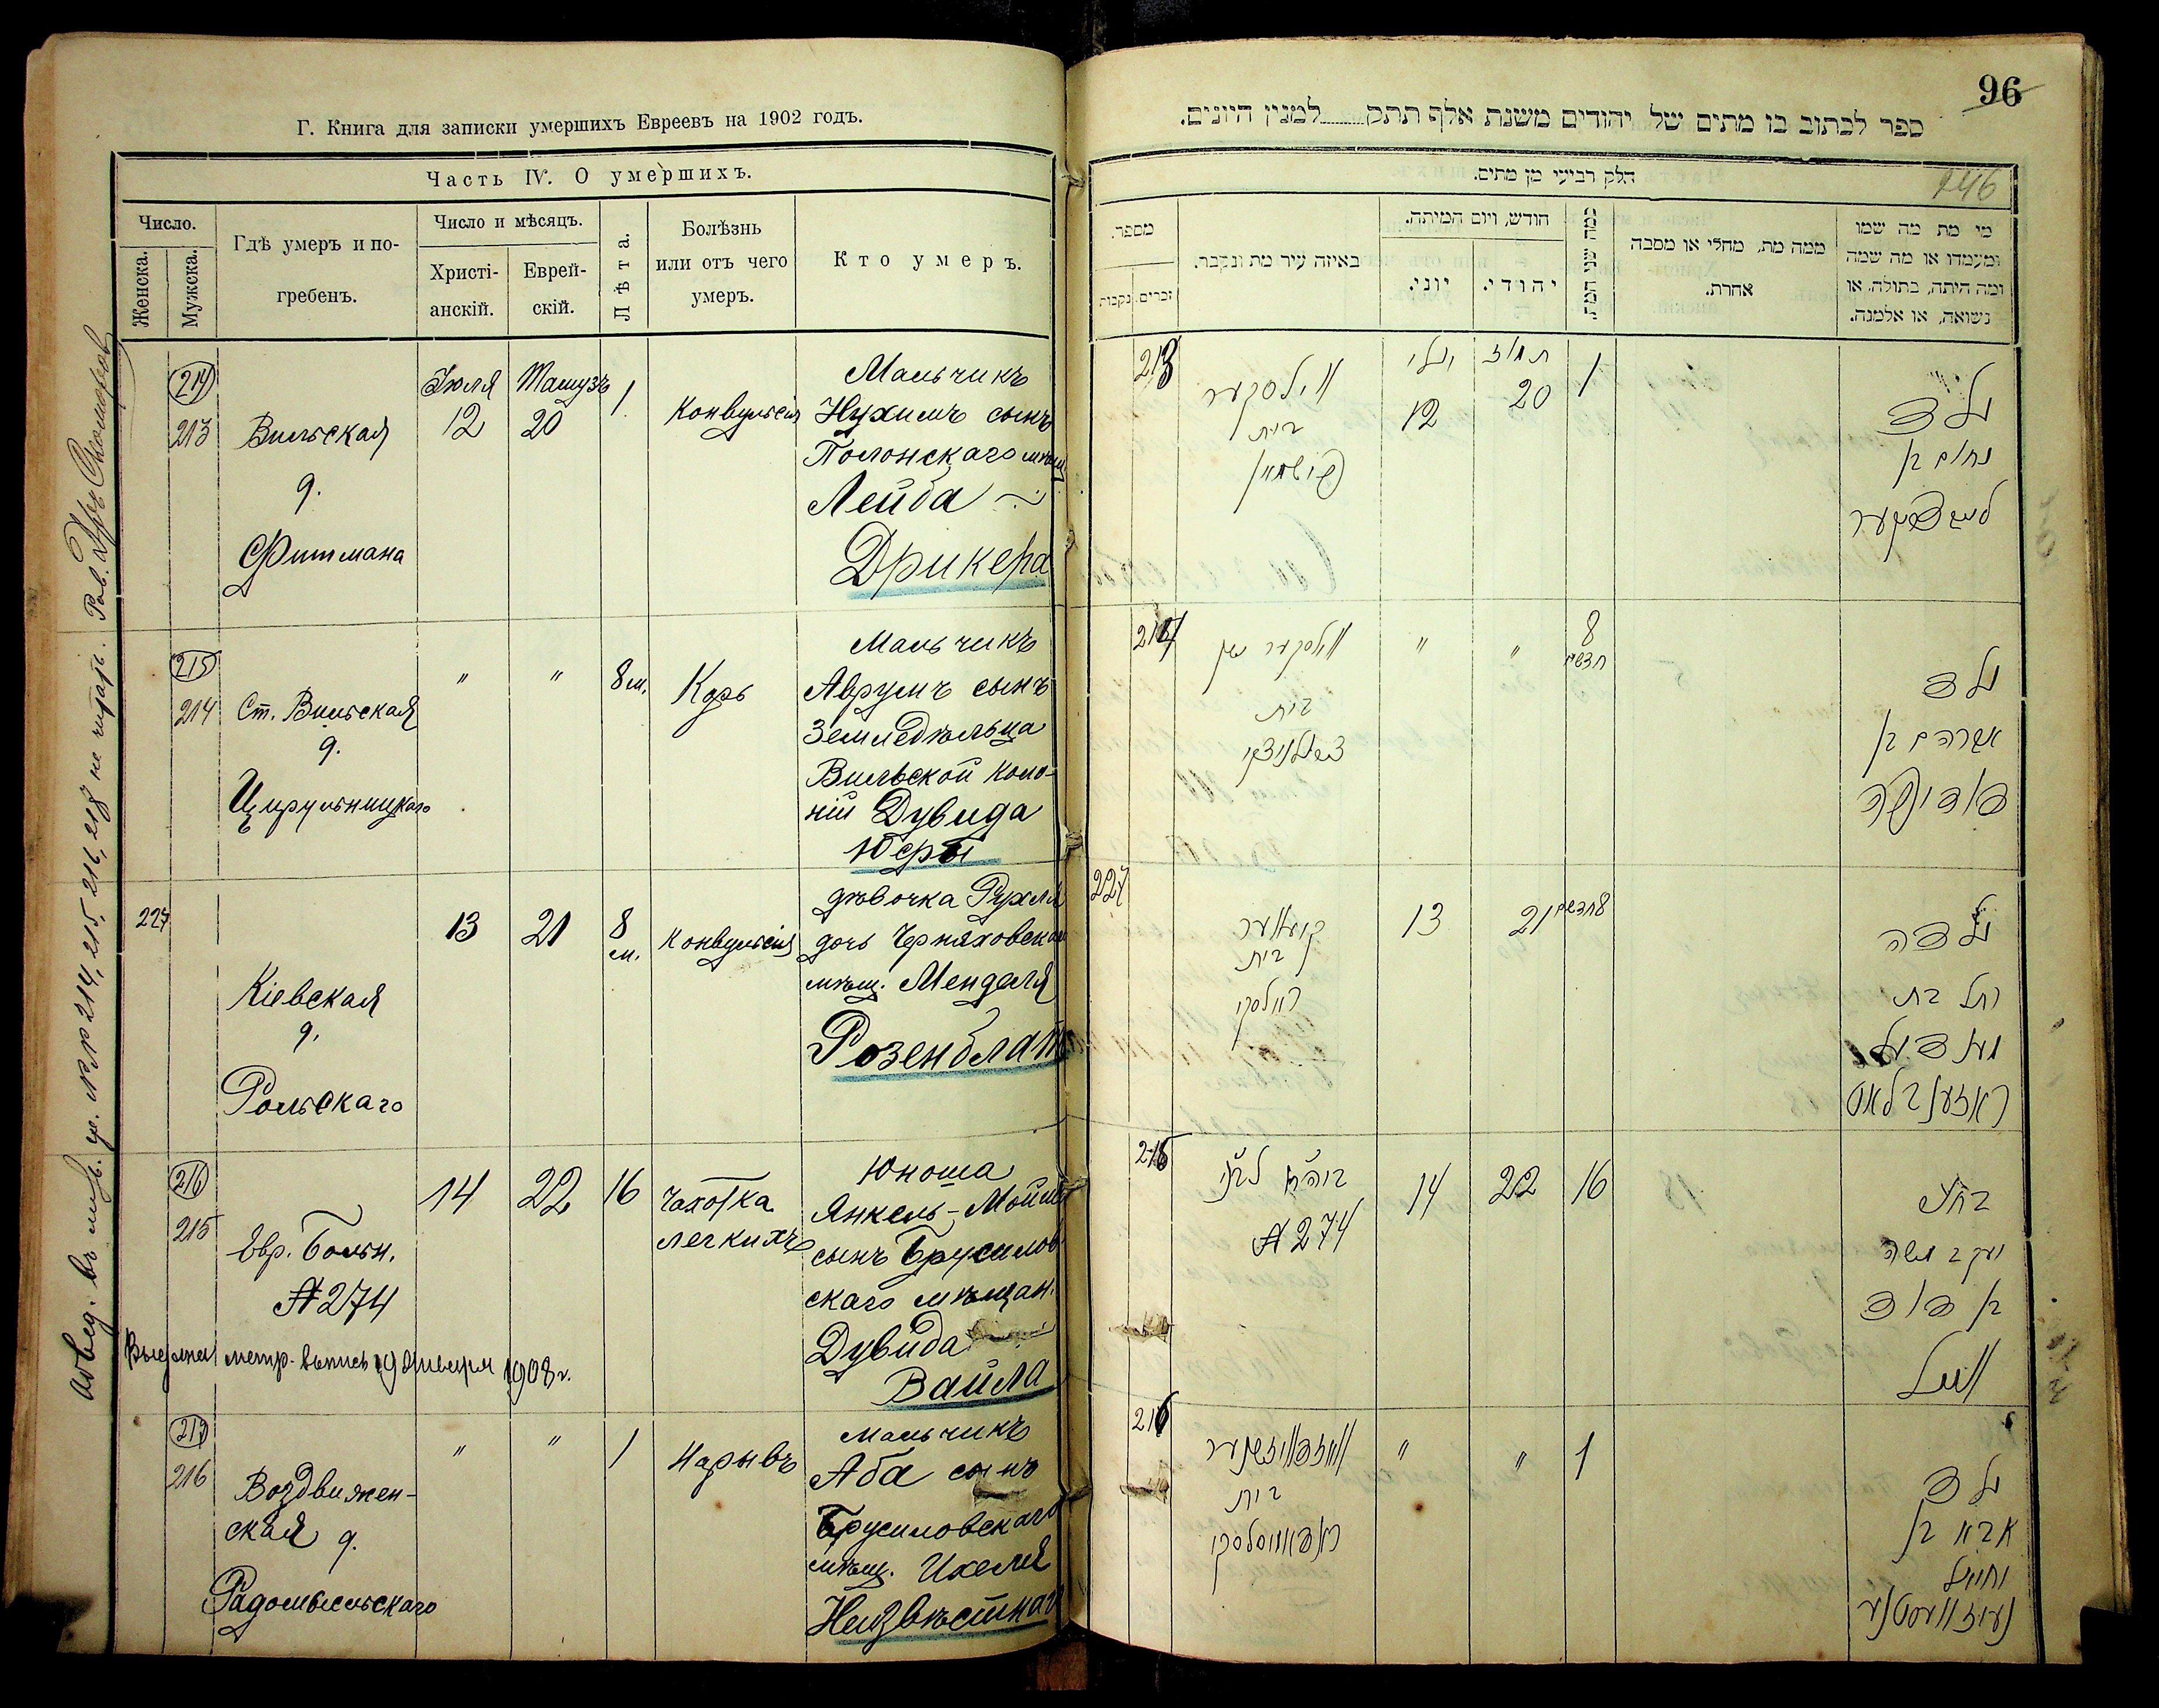 Г. Книга для записки умершихъ Евреевъ на 1902 годъ.
Часть IV. О умершихъ.
Число.
Женска.
Мужска.
Гдѣ умеръ и по-
гребенъ.
Число и мѣсяцъ.
Христі-
анскій.
Еврей-
скій.
Лѣта.
Болѣзнь
или отъ чего
умеръ.
Кто умеръ.
214
213
Вильская
д.
Фитмана
Іюля
12
Тамузъ
20
1
Конвульсія
Мальчикъ
Нухимъ сынъ
Полонскаго мѣщ
Лейба
Дрикера
215
214
Ст. Вильская
д.
Цирульницкаго
"
"
8 м.
Корь
Мальчикъ
Аврумъ сынъ
Земледѣльца
Вильской коло-
ніи Дувида
227
Кіевская
д.
Рольскаго
13
21
8
м.
Конвульсія
дѣвочка Рухля
дочь Черняховскаго
мѣщ. Менделя
Розенблат
216
215
Евр. Больн.
№ 274
14
22
16
Чахотка
легкихъ
Юноша
Янкель-Мойше
сынъ Брусилов
скаго мѣщан.
Дувида
Вайла
метр. выпись 19 Января 1908 г.
217
216
Воздвижен-
ская д.
Радомысльскаго
"
"
1
Нарывъ
Мальчикъ
Аба сынъ
Брусиловскаго
мѣщ. Ихеля
Неизвѣстнаго
96
146
ספר לכתוב בו מתים של יהודים משנת אלף תתק למנין היונים.
חלק רביעי מן מתים.
מספר.
זכרים.
נקבות
באיזה עיר מת ונקבר.
חודש, ויום המיתה.
יוני.
יהודי.
כמה שני המת
ממה מת, מחלי או מסבה
אחרת.
מי מת מה שמו
ומעמדו או מה שמה
ומה היתה, בתולה, או
נשואה, או אלמנה.
213
ווילסקער
בית
יולי
12
תמוז
20
1
ילד
נחום בן
214
בית
"
"
8
חדשים
ילד
אברהם בן
227
קיעווער
בית
ראלסקי
13
21
8 חדשים
ילדה
רחל בת
מענדיל
ראזענבלאט
215
№ 274
14
22
16
בחור
יעקב משה
בן דוד
ווייל
216
בית
"
"
1
ילד
אבא בן
יחיאל